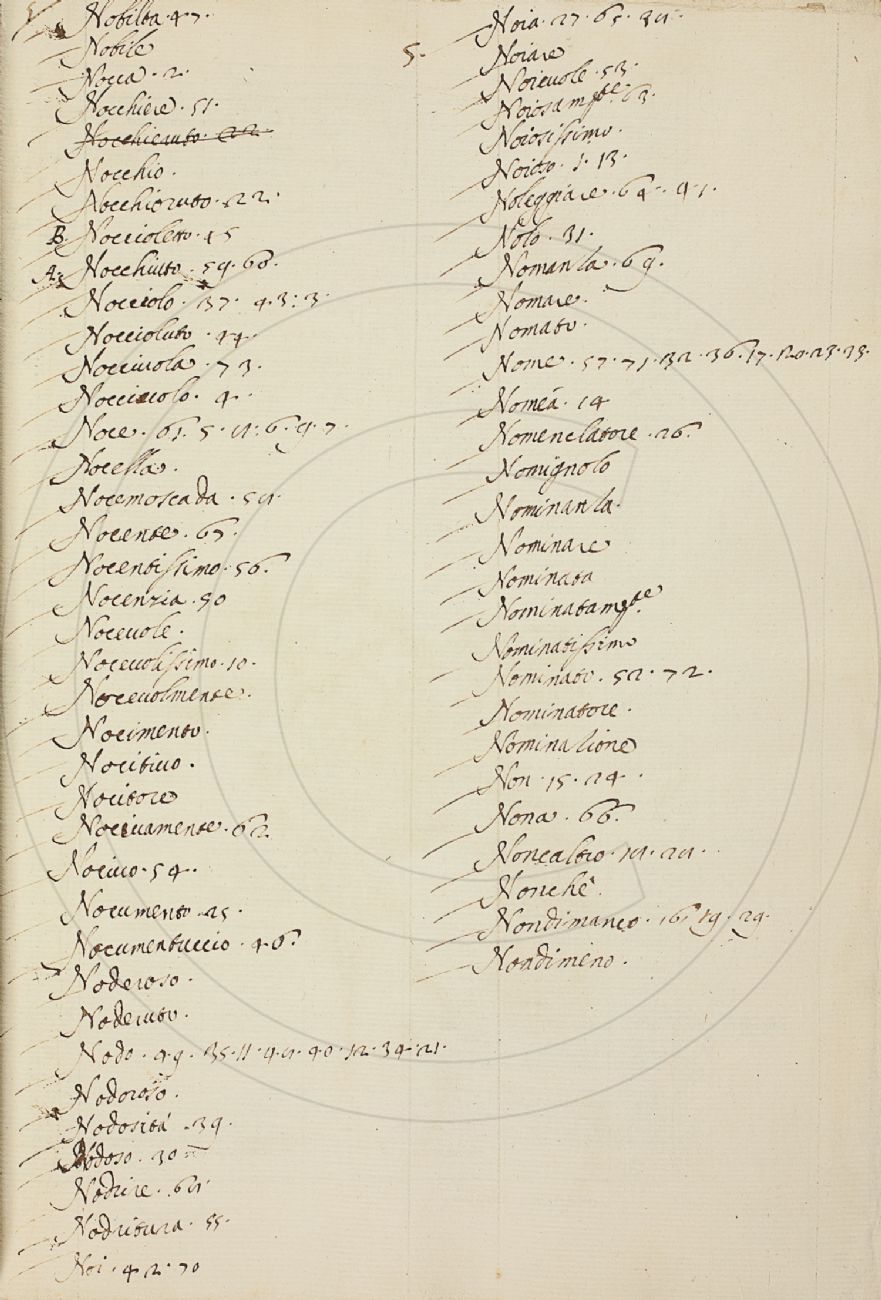 Nobiltà. 47.
Nobile
Nocca. 2.
Nocchiere. 51.
Nocchieruto. 22.
Nocchio.
Nocchioruto. 22.
B. Noccioletto. 45
A. Nocchiuto. 59. 68.
Nocciolo. 37. 43: 3.
Noccioluto. 44.
Nocciuola. 73.
Nocciuolo. 4.
Noce. 61. 5. 6. 9. 7.
Nocella.
Nocemoscada.
Nocente. 67.
Nocentissimo. 56.
Nocenzia. 50
Noceuole.
Noceuolissimo. 10.
Noceuolmente.
Nocimento.
Nocitiuo.
Nocitore
Nociuamente. 62.
Nociuo. 54.
Nocumento. 25.
Nocumentuccio. 46.
Noderoso.
Noderuto.
Nodo. 49. 35. 11. 40. 12. 34. 21.
Nodoroso.
Nodosità. 39.
Nodoso. 30
Nodrire.
Nodritura. 55.
Noi. 42. 70
5.
Noia. 27. 65.
Noiare
Noieuole. 53.
Noiosamte. 63.
Noiosissimo.
Noioso. 1. 13.
Noleggiare. 64. 41.
Nolo. 31.
Nomanza. 69.
Nomare.
Nomato.
Nome. 57. 71. 32. 36. 17. 20. 23. 33.
Nomèa. 14
Nomenclatore. 26.
Nomignolo
Nominanza.
Nominare
Nominata
Nominatamte.
Nominatissimo
Nominato. 52. 72.
Nominatore.
Nominazione
Non. 15. 24.
Nona. 66.
Noncaltro.
Nonchè.
Nondimanco. 16. 19. 29.
Nondimeno.